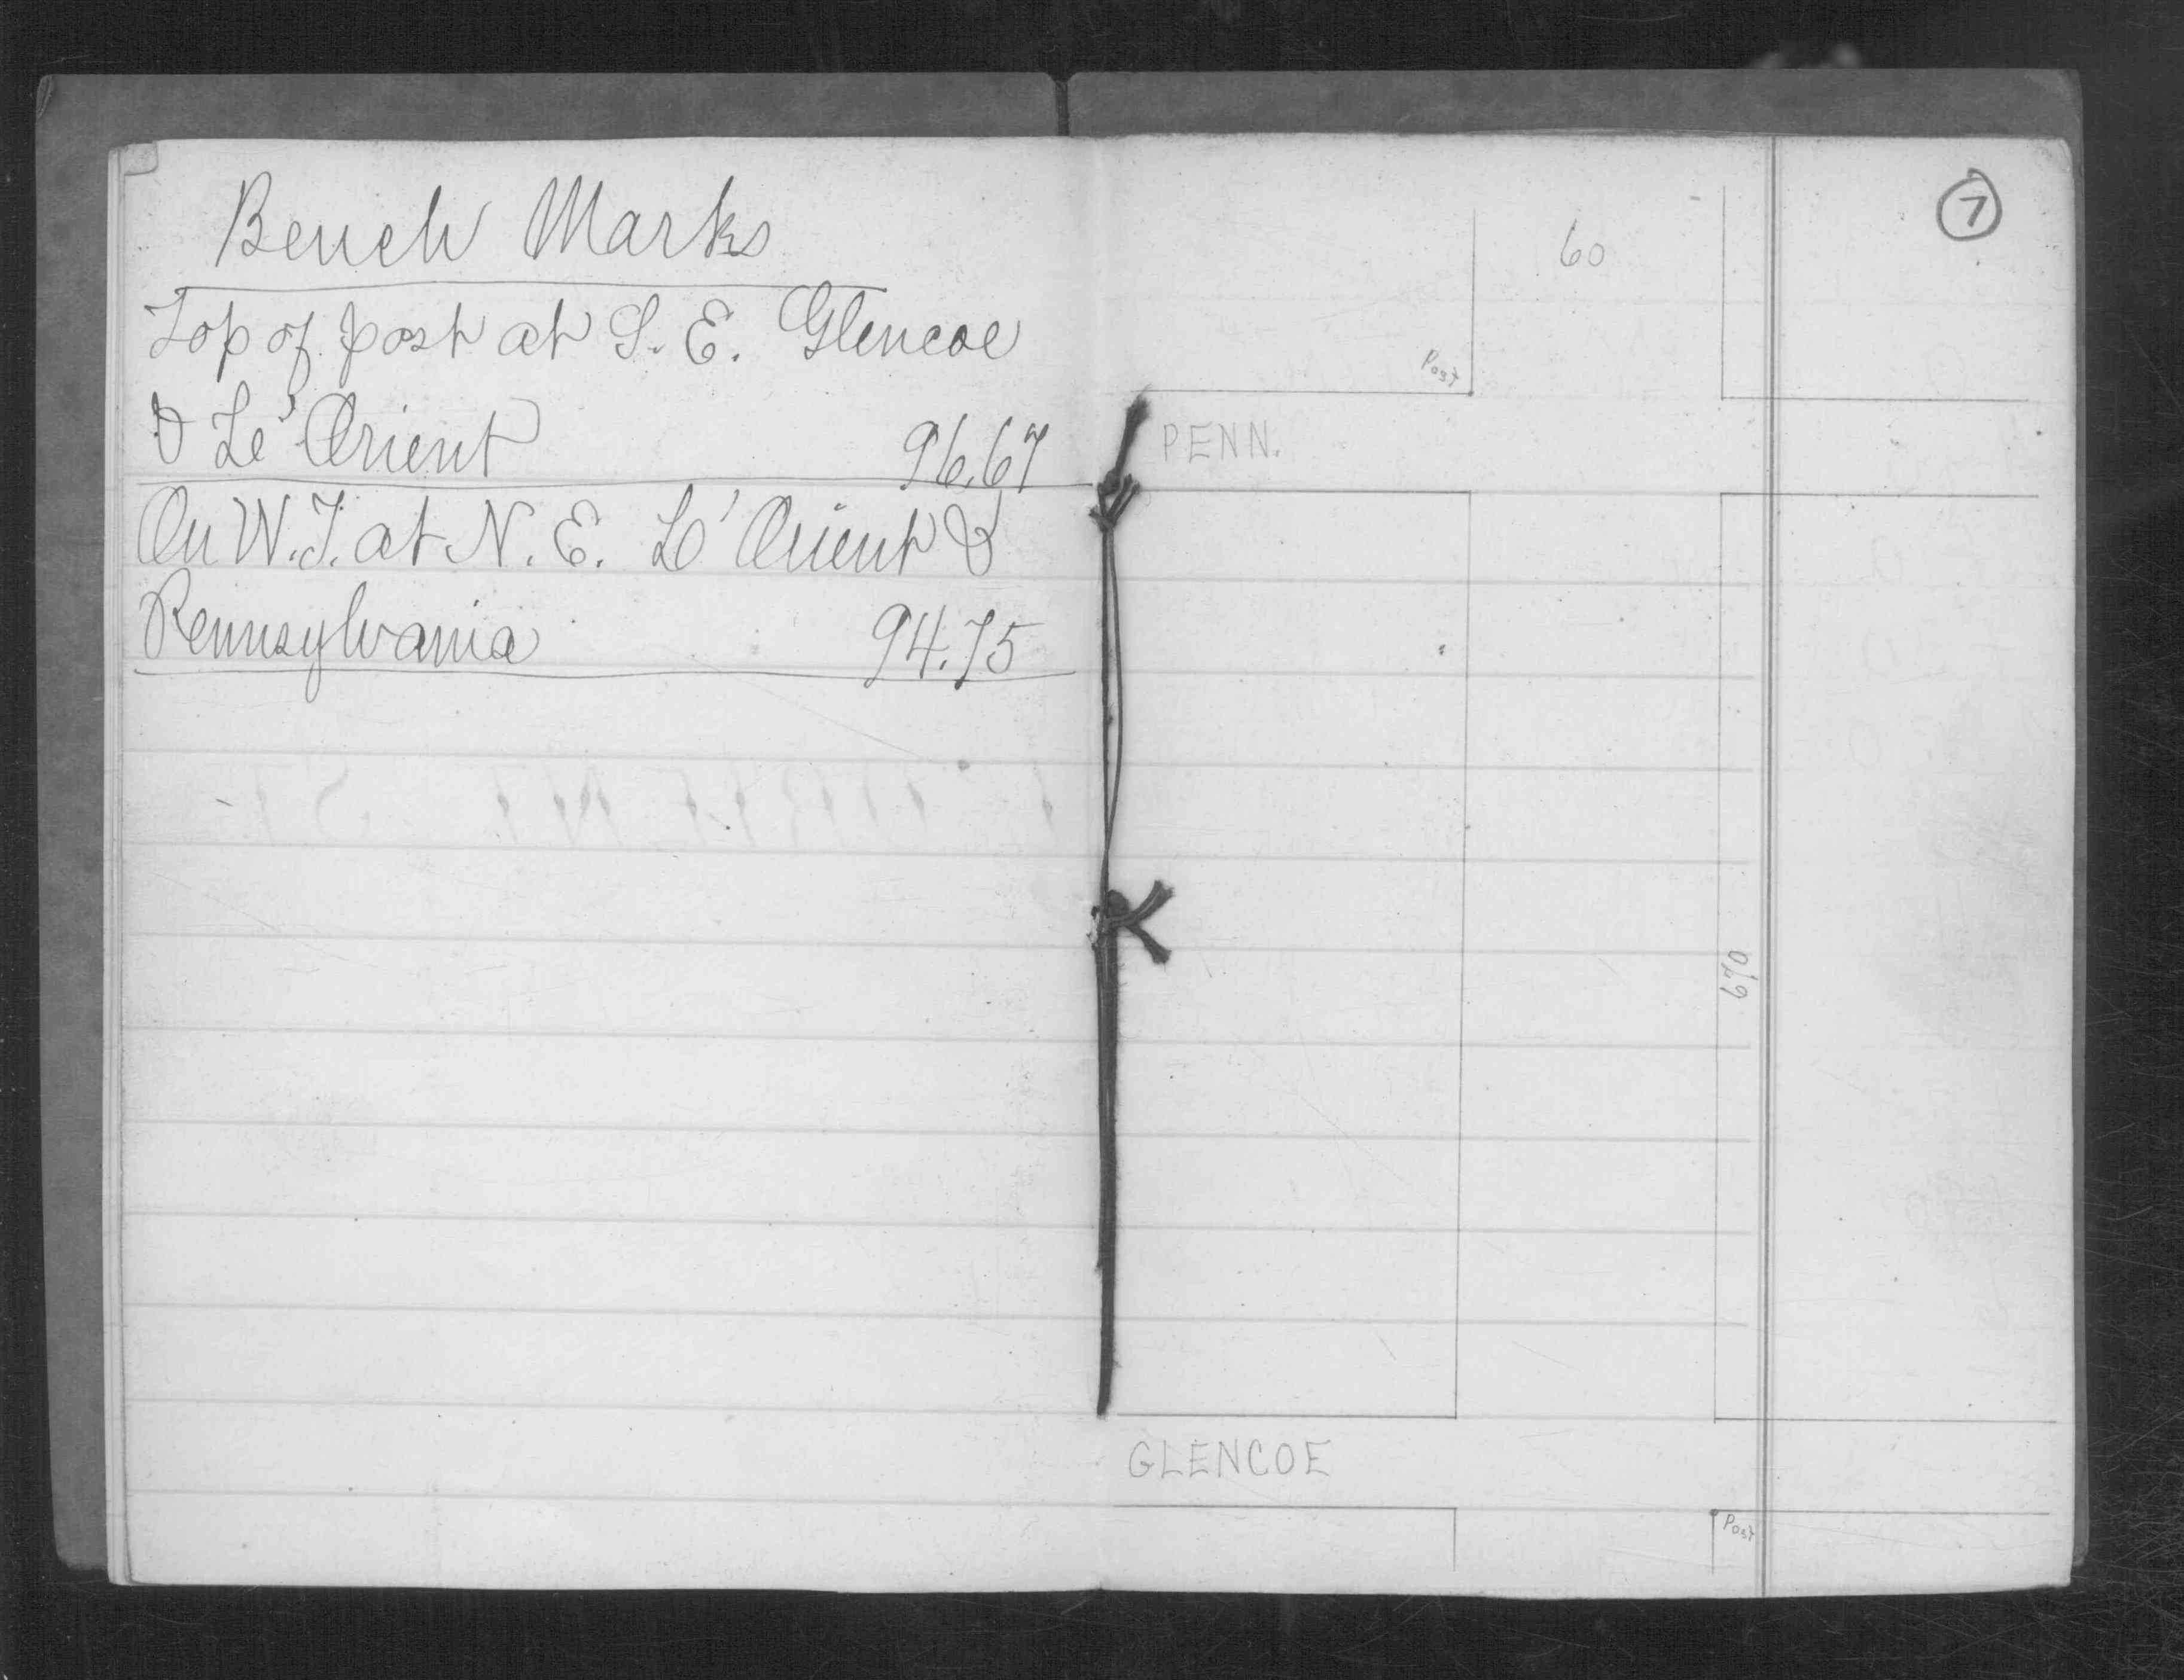 Bench Marks
Top of post at S. E. Glencoe
& Le' Orient 96.67
On W.T. at N. E. Le' Orient &
Pennsylvania 94.75
7
60
Post
PENN.
670
GLENCOE
Post